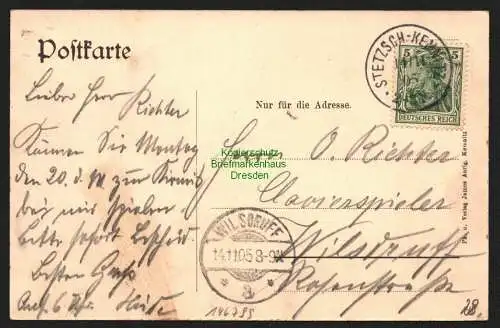 Postkarte
Lieber Herr Richter
Können Sie Montag
den 20. d. M. zum Kirmes
bei mir spielen
bitte sofort Bescheid
besten Gruß
Nur für die Adresse.
Herrn O. Richter
Clavierspieler
Wilsdruff
Rosenstraße
STETZSCH-KEM
5 5
DEUTSCHES REICH
WILSDRUFF
14.11.05.8-9V.
Kopierschutz
Briefmarkenhaus
Dresden
Ph. u. Verlag James Aurig, Kemnitz
146795
28.